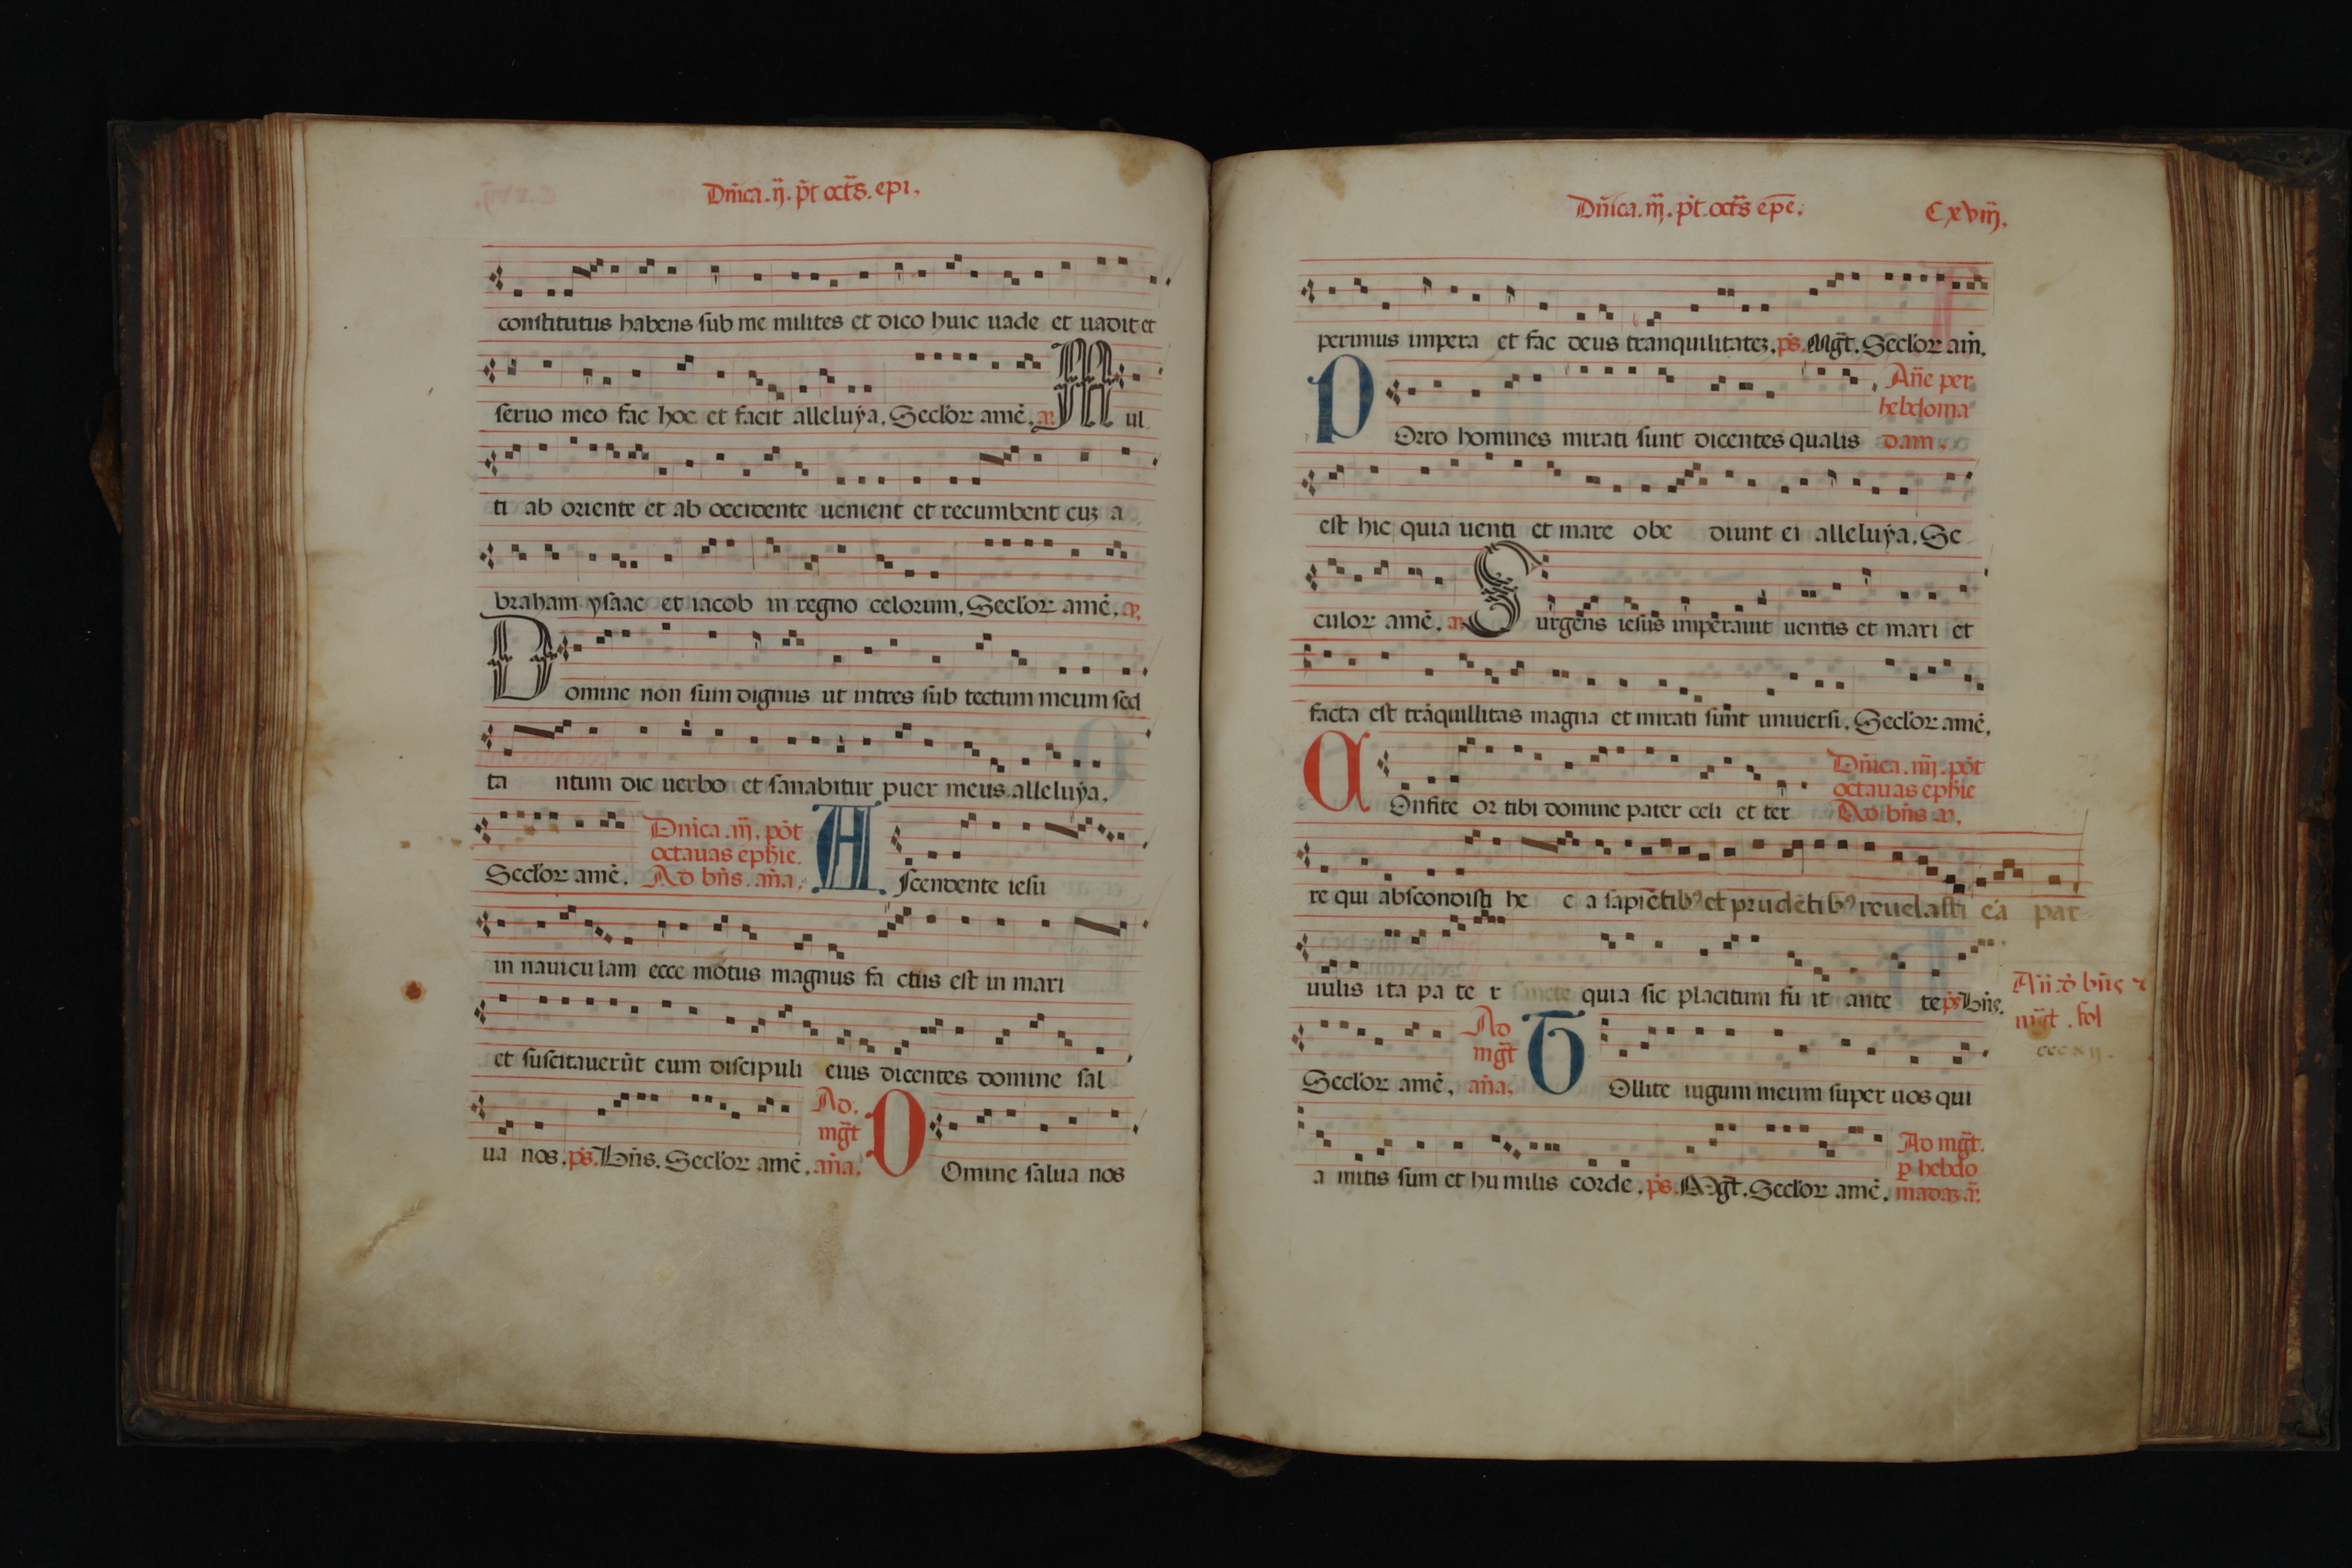 Dñica .ij. p̃t oct̃s. epi,
constitutus habens sub me milites et dico huic uade et uadit et
seruo meo fac hoc et facit alleluẏa, Secl'or amē. a. Mul
ti ab oriente et ab occidente uenient et recumbent cuʒ a
braham ysaac et iacob in regno celorum, Secl'or amē. a.
Domine non sum dignus ut intres sub tectum meum sed
ta ntum dic uerbo et sanabitur puer meus alleluẏa,
Secl'or amē. Dñica .iij. pȯt octauas ephie. Ad bñs. aña, Ascendente iesu
in nauicu lam ecce motus magnus fa ctus est in mari
et suscitauerūt eum discipuli eius dicentes domine sal
ua nos. ps. Bñs. Secl'or amē. Ad. mg̃t aña, Domine salua nos
Dñica .iij. p̃t. oct̃s epe. Cxviij,
perimus impera et fac deus tranquilitateʒ. ps. Mg̃t. Secl'or am̄.
POrro homines mirati sunt dicentes qualis Añe per hebdoma dam,
est hic quia uenti et mare obe diunt ei alleluẏa. Se
culor amē. a. Surgens iesus imperauit uentis et mari et
facta est trāquillitas magna et mirati sunt uniuersi. Secl'or amē.
COnfite or tibi domine pater celi et ter Dñica .iiij. pȯt octauas ephie Ad bñs a.
re qui abscondisti he c a sapiētibꝰ et prudētibꝰ reuelasti ea par
uulis ita pa te r sancte quia sic placitum fu it ante te ps Bñs.
Añ ad bñs ⁊ mg̃t. fol cccxij.
Secl'or amē, Ad mg̃t aña, TOllite iugum meum super uos qui
a mitis sum et hu milis corde. ps. Mg̃t. Secl'or amē. Ad mg̃t. ꝑ hebdo madaʒ a.